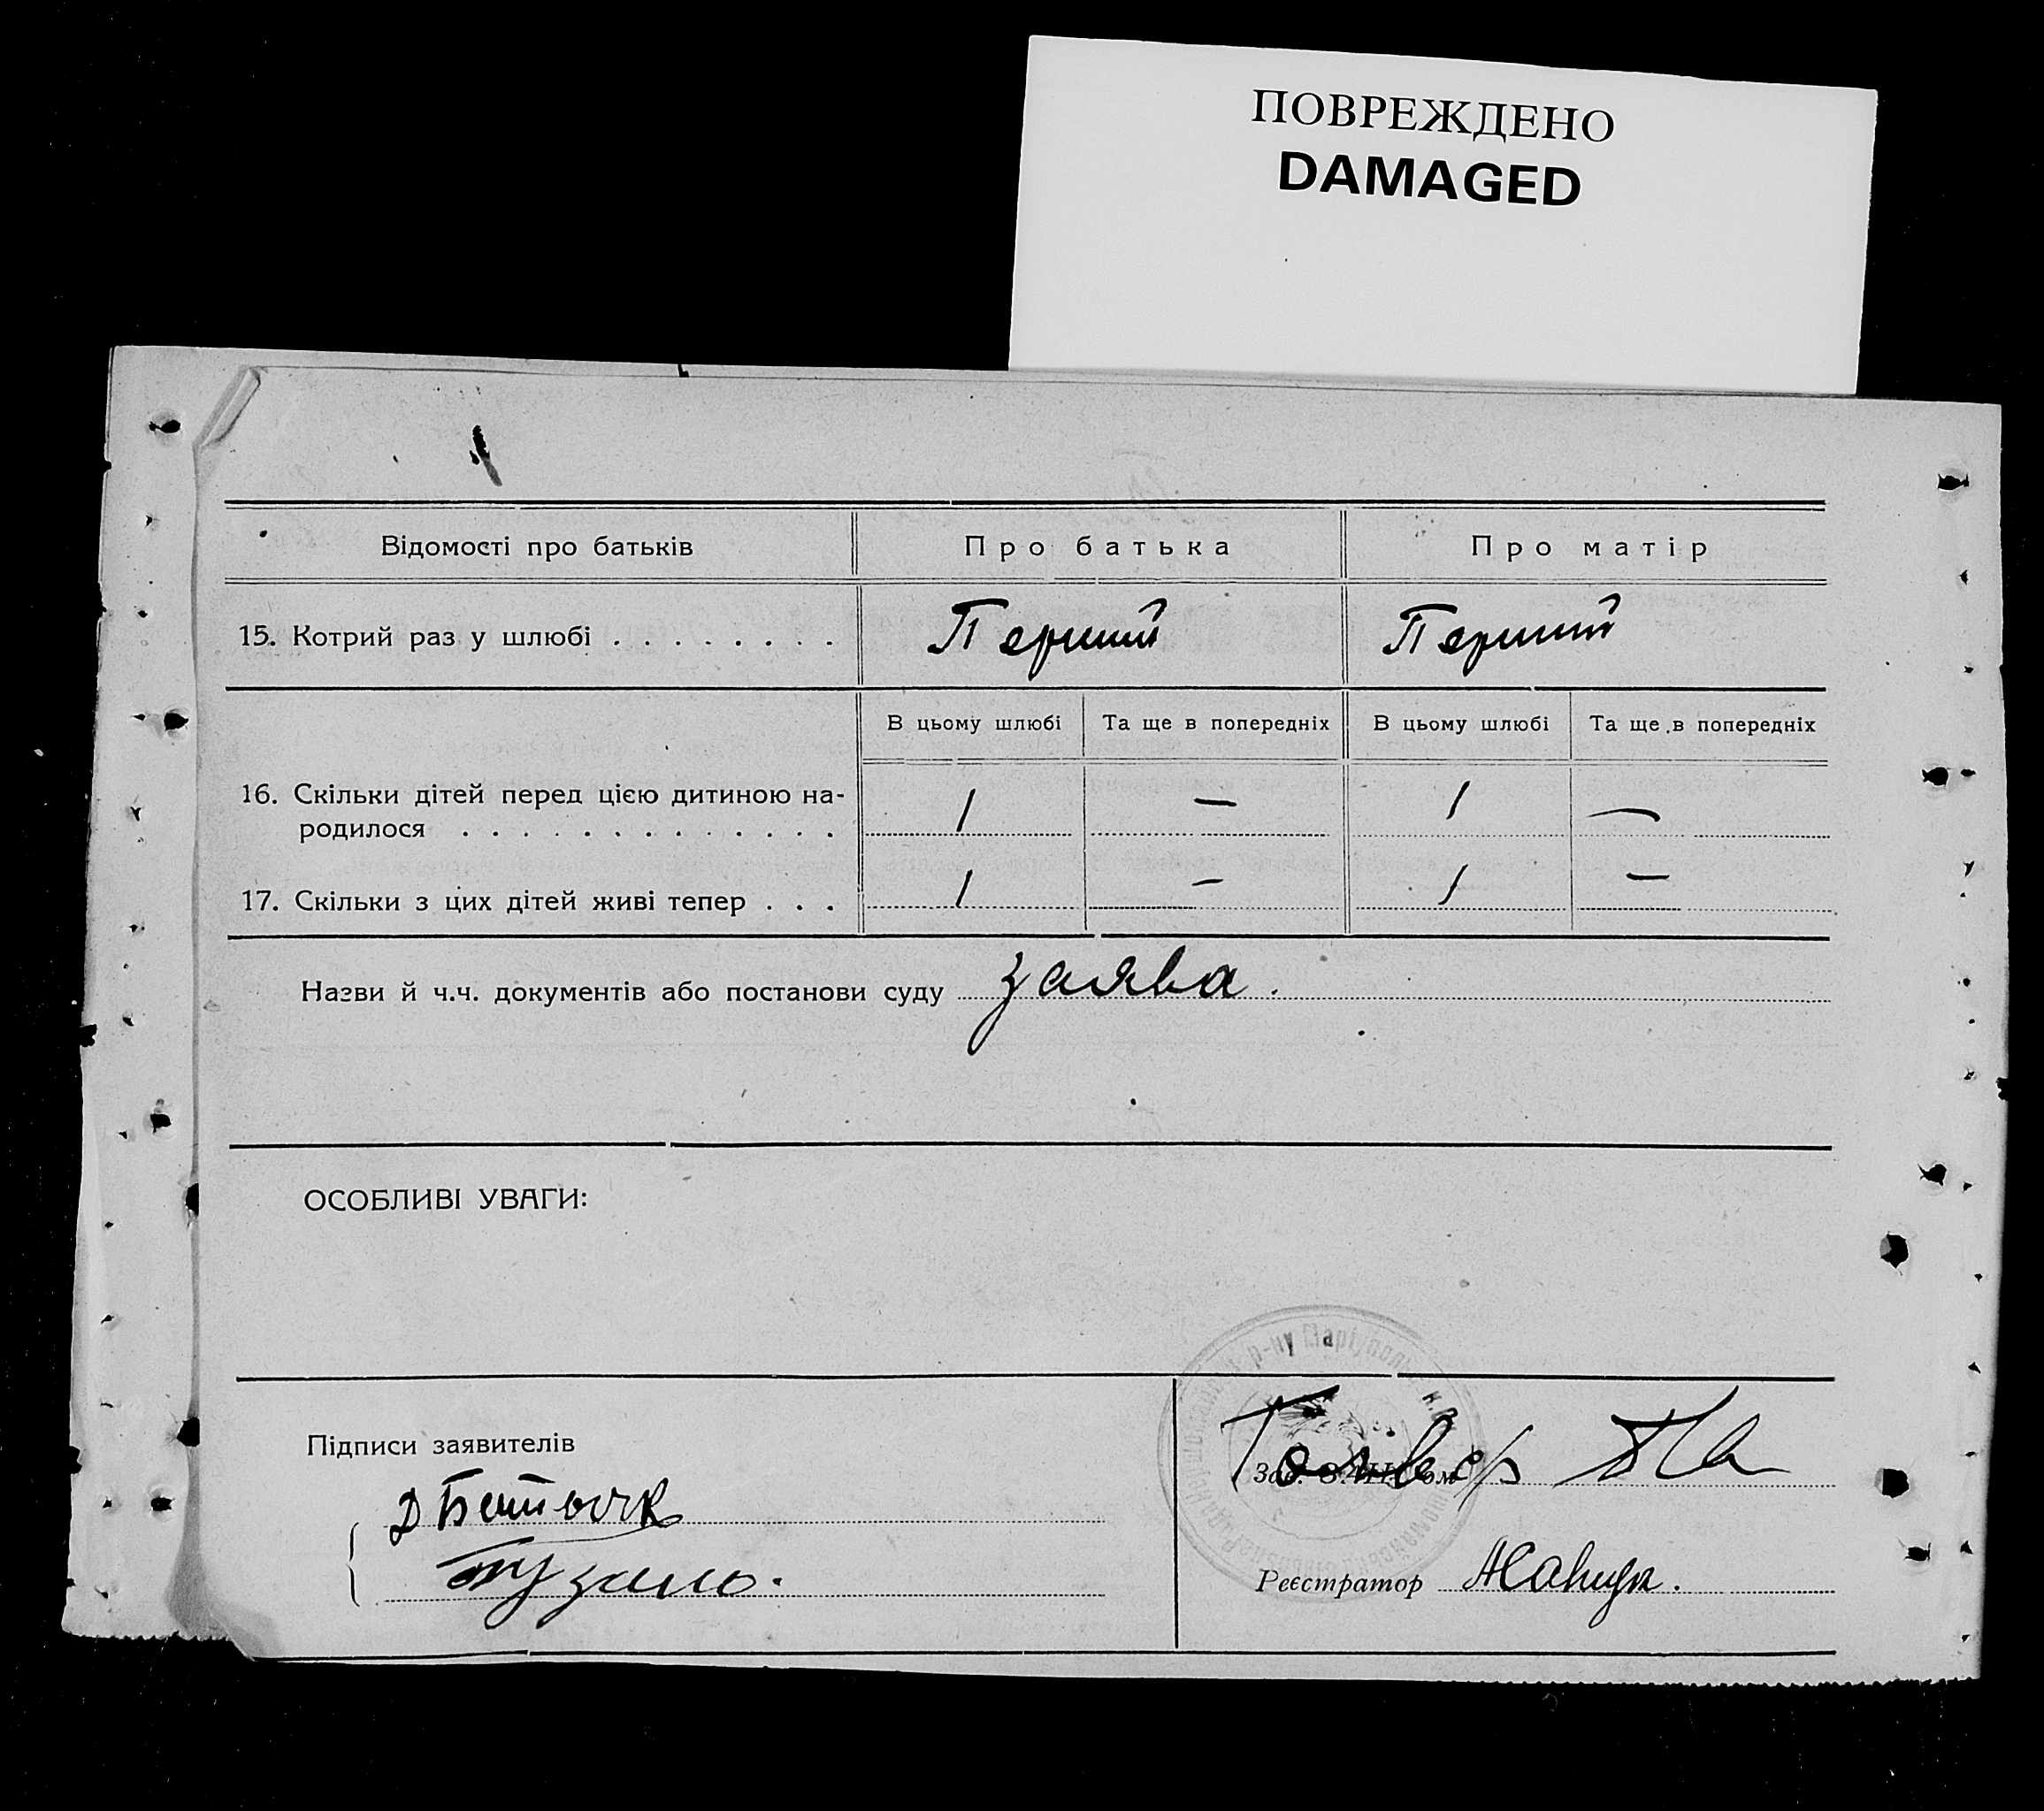 ПОВРЕЖДЕНО
DAMAGED
Відомості про батьків Про батька Про матір
15. Котрий раз у шлюбі . . . . . . . . Перший Перший
В цьому шлюбі Та ще в попередніх В цьому шлюбі Та ще в попередніх
16. Скільки дітей перед цією дитиною на-
родилося . . . . . . . . . . . . . 1 — 1 —
17. Скільки з цих дітей живі тепер . . . 1 — 1 —
Назви й ч.ч. документів або постанови суду заява.
ОСОБЛИВІ УВАГИ:
р-ну Маріуполь
Підписи заявителів
Зав.
Реєстратор